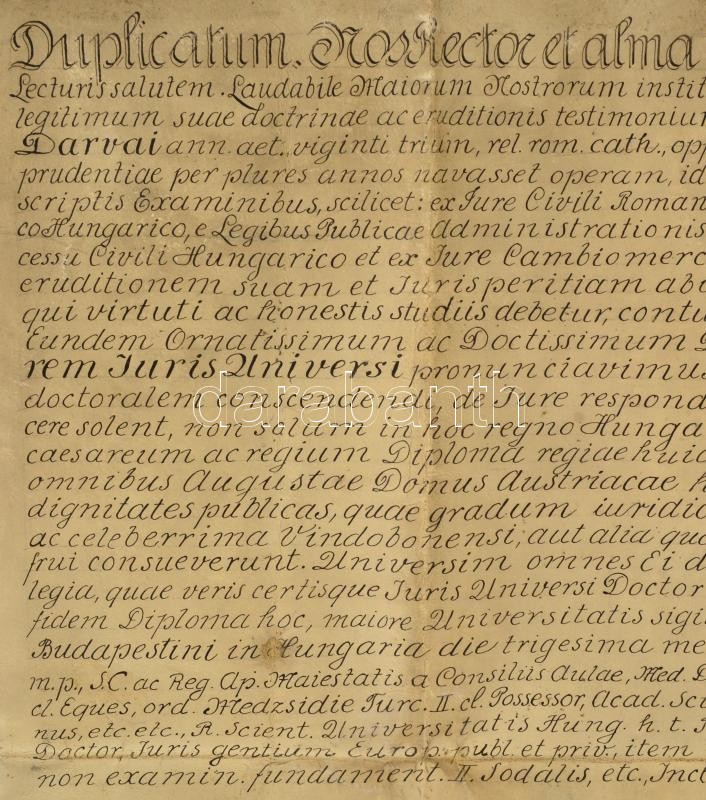 Duplicatum. Nos Rector et alma
Lecturis salutem. Laudabile Maiorum Nostrorum instit
legitimum suae doctrinae ac eruditionis testimoniu
Darvai ann. aet. viginti trium, rel. rom. cath., opp
prudentiae per plures annos navasset operam, id
scriptis Examinibus, scilicet: ex Iure Civili Roman
co Hungarico, e Legibus Publicae administrationis
cessu Civili Hungarico et ex Iure Cambio merc
eruditionem suam et Iurisperitiam abu
qui virtuti ac honestis studiis debetur, contu
Eundem Ornatissimum ac Doctissimum D
rem Iuris Universi pronunciavimus
doctoralem conscendendi, de Iure responde
cere solent, non solum in hoc regno Hunga
caesareum ac regium Diploma regiae huic
omnibus Augustae Domus Austriacae h
dignitates publicas, quae gradum iuridic
ac celeberrima Vindobonensi, aut alia qua
frui consueverunt. Universim omnes Ei d
legia, quae veris certisque Iuris Universi Doctor
fidem Diploma hoc, maiore Universitatis sigil
Budapestini in Hungaria die trigesima me
m.p., S.C. ac Reg. Ap. Maiestatis a Consiliis Aulae, Med. D
cl. Eques, ord. Medzsidie Turc. II. cl. Possessor, Acad. Sci
nus, etc. etc., R. Scient. Universitatis Hung. h. t.
Doctor, Iuris gentium Europ. publ. et priv., item
non examin. fundament. II. Sodalis, etc., Incl
darabanth